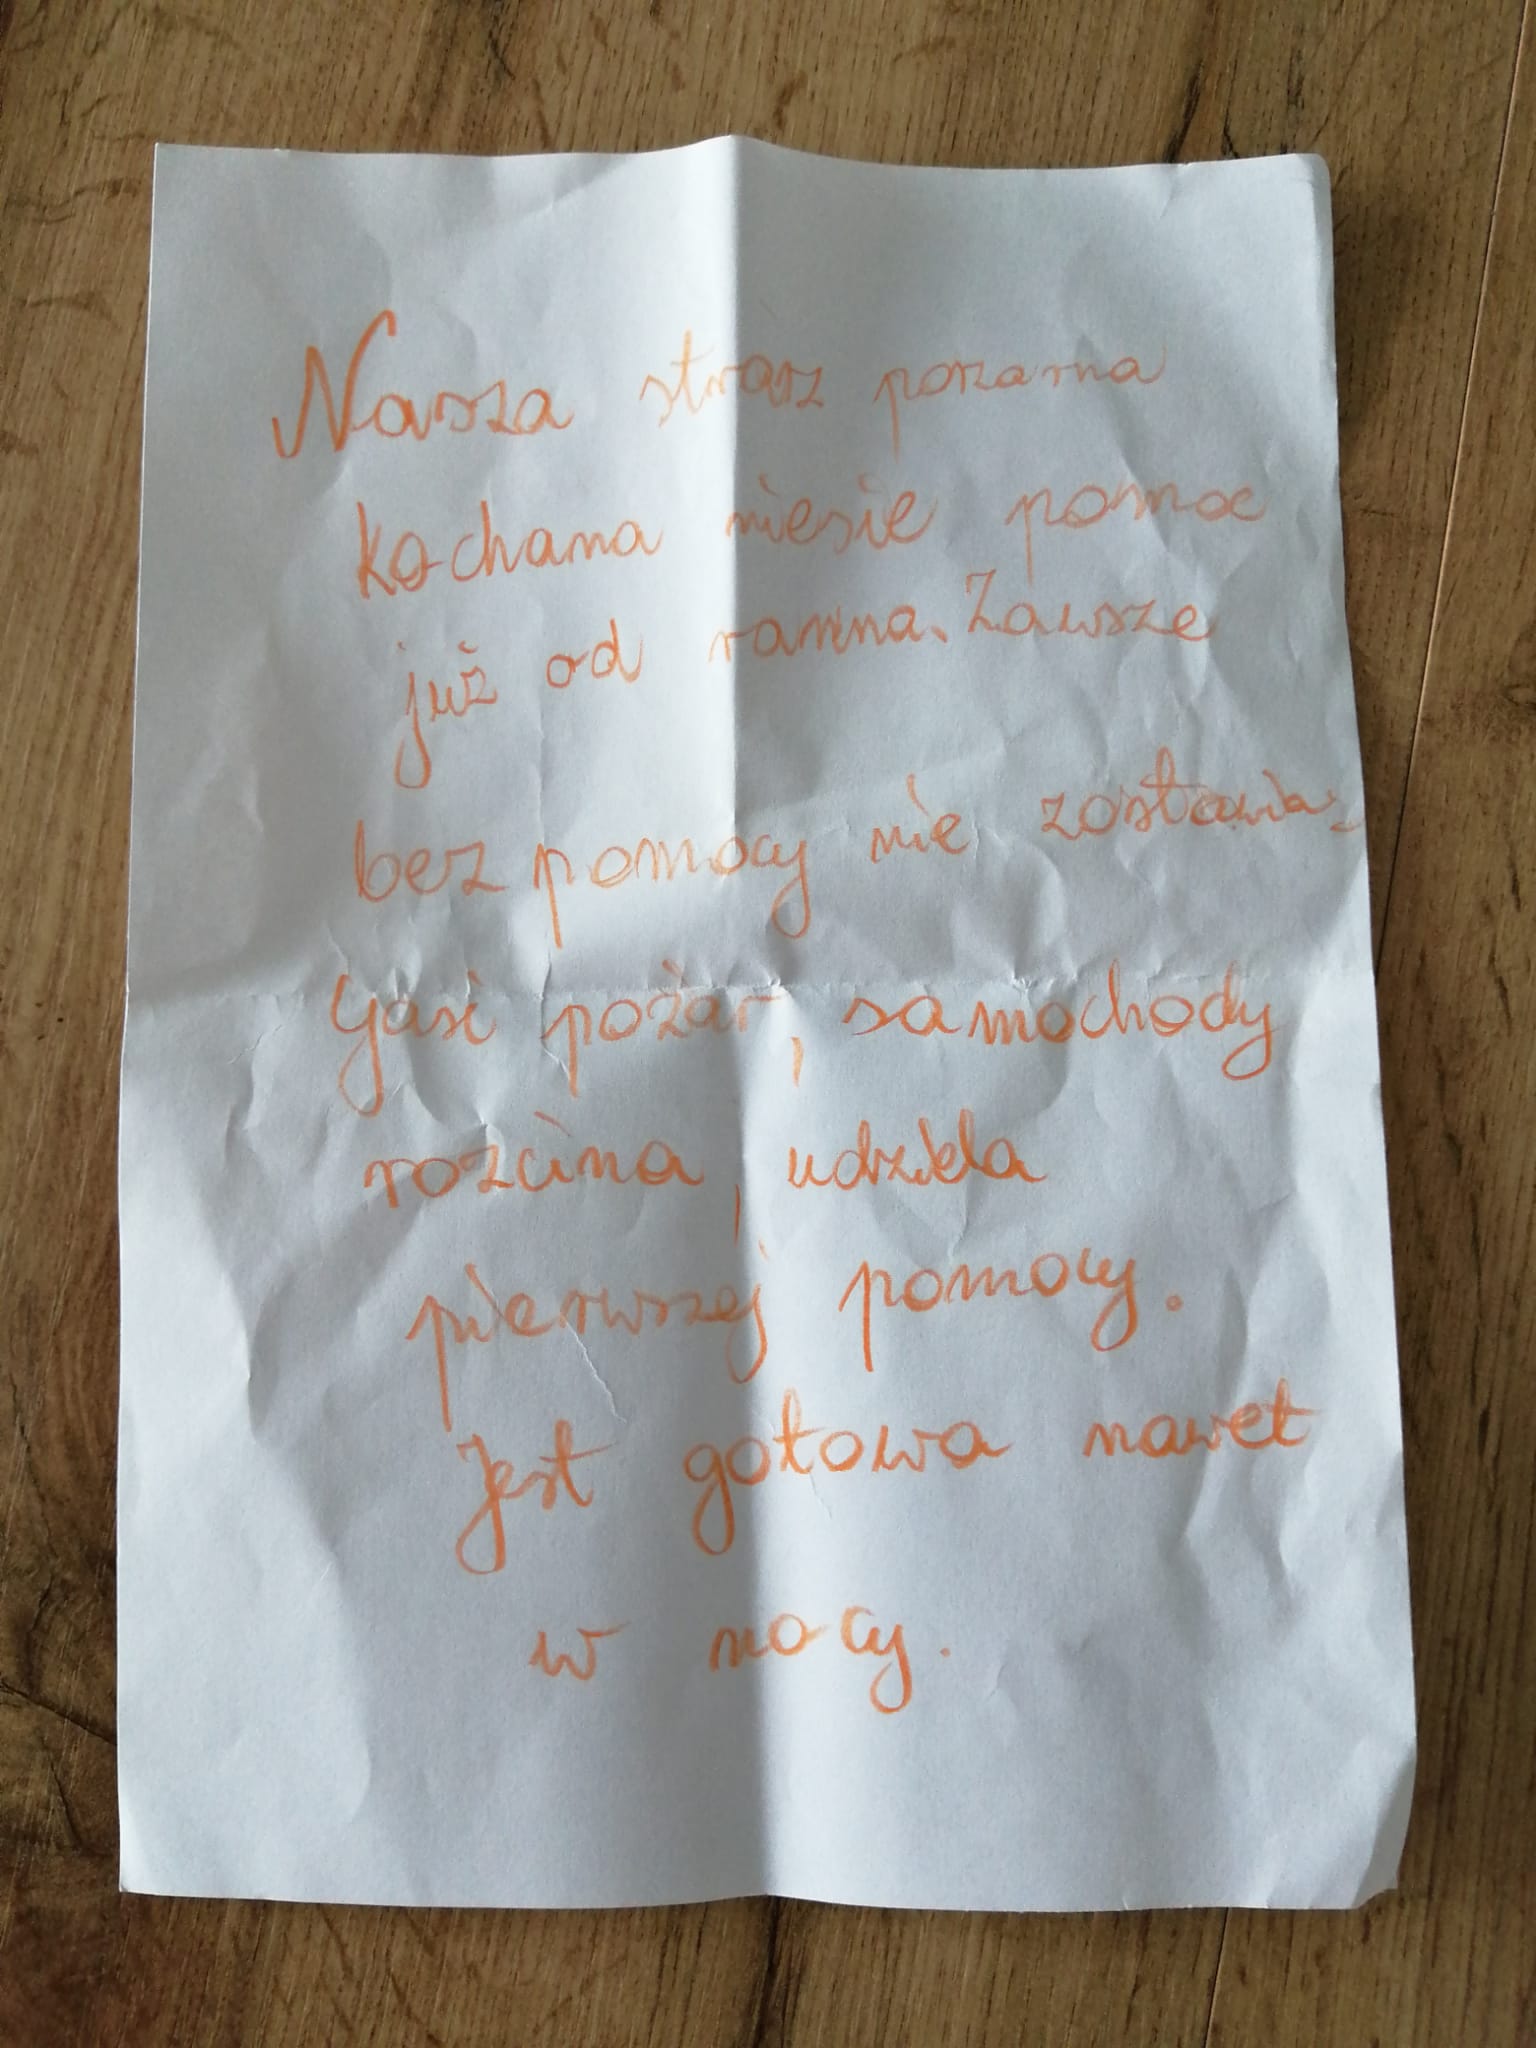 Nasza straz pozarna
kochana niesie pomoc
już od ranna. Zawsze
bez pomocy nie zostawia.
Gasi pożar, samochody
rozcina, udziela
pierwszej pomocy.
Jest gotowa nawet
w nocy.